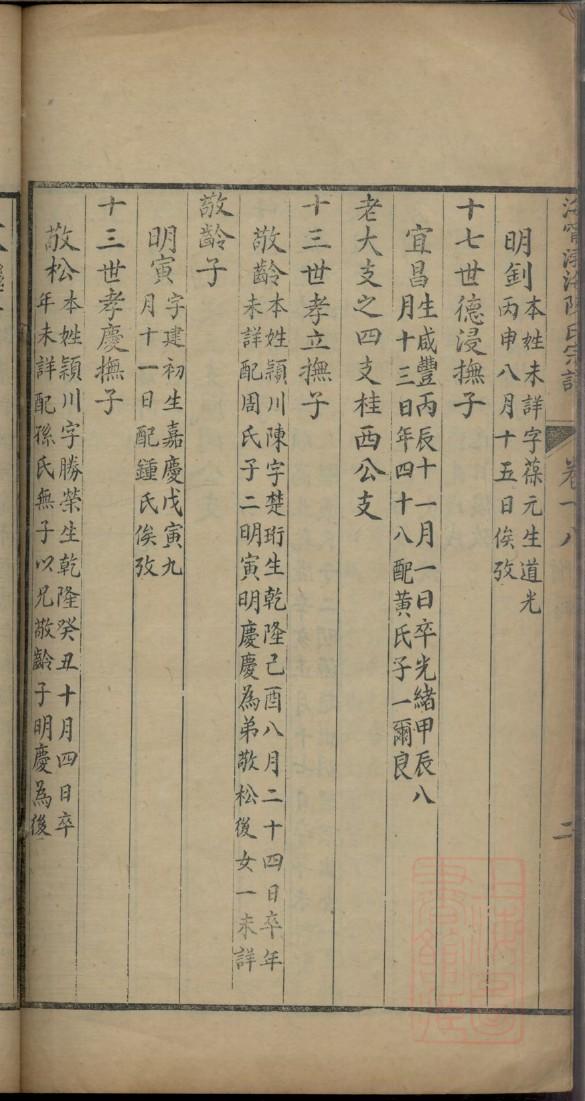 海寧渤海陳氏宗譜 卷十八 二
明釗本姓未詳字葆元生道光
丙申八月十五日俟攷
十七世德浸撫子
宜昌生咸豐丙辰十一月一日卒光緒甲辰八
月十三日年四十八配黃氏子一爾良
老大支之四支桂西公支
十三世孝立撫子
敬齡本姓潁川陳字楚珩生乾隆己酉八月二十四日卒年
未詳配周氏子二明寅明慶慶為弟敬松後女一未詳
敬齡子
明寅字建初生嘉慶戊寅九
月十一日配鍾氏俟攷
十三世孝慶撫子
敬松本姓潁川字勝榮生乾隆癸丑十月四日卒
年未詳配孫氏無子以兄敬齡子明慶為後